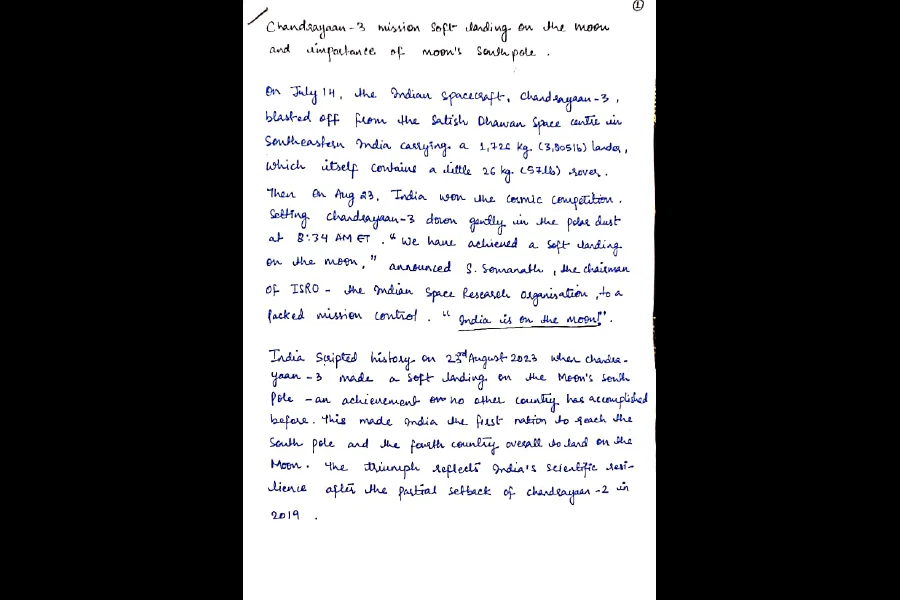 1
Chandrayaan-3 mission soft landing on the moon
and importance of moon's south pole.
On July 14, the Indian spacecraft, Chandrayaan-3,
blasted off from the Satish Dhawan Space centre in
Southeastern India carrying a 1,726 kg. (3,805 lb) lander,
which itself contains a little 26 kg. (57 lb) rover.
Then on Aug 23, India won the cosmic competition.
Setting Chandrayaan-3 down gently in the polar dust
at 8:34 AM ET. "We have achieved a soft landing
on the moon," announced S. Somanath, the chairman
of ISRO - the Indian Space Research Organisation, to a
packed mission control. "India is on the moon!".
India scripted history on 23rd August 2023 when chandra-
yaan-3 made a soft landing on the Moon's South
Pole - an achievement no other country has accomplished
before. This made India the first nation to reach the
South pole and the fourth country overall to land on the
Moon. The triumph reflects India's scientific resi-
lience after the partial setback of chandrayaan-2 in
2019.